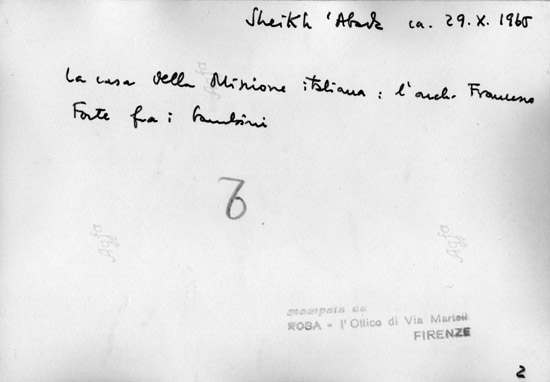 Sheikh 'Abada ca. 29.X.1965
La casa della Missione italiana: l'arch. Francesco
Forte fra i bambini
Agfa
6
Agfa
Agfa
Stampata da
ROSA - l'Ottico di Via Martelli
FIRENZE
2